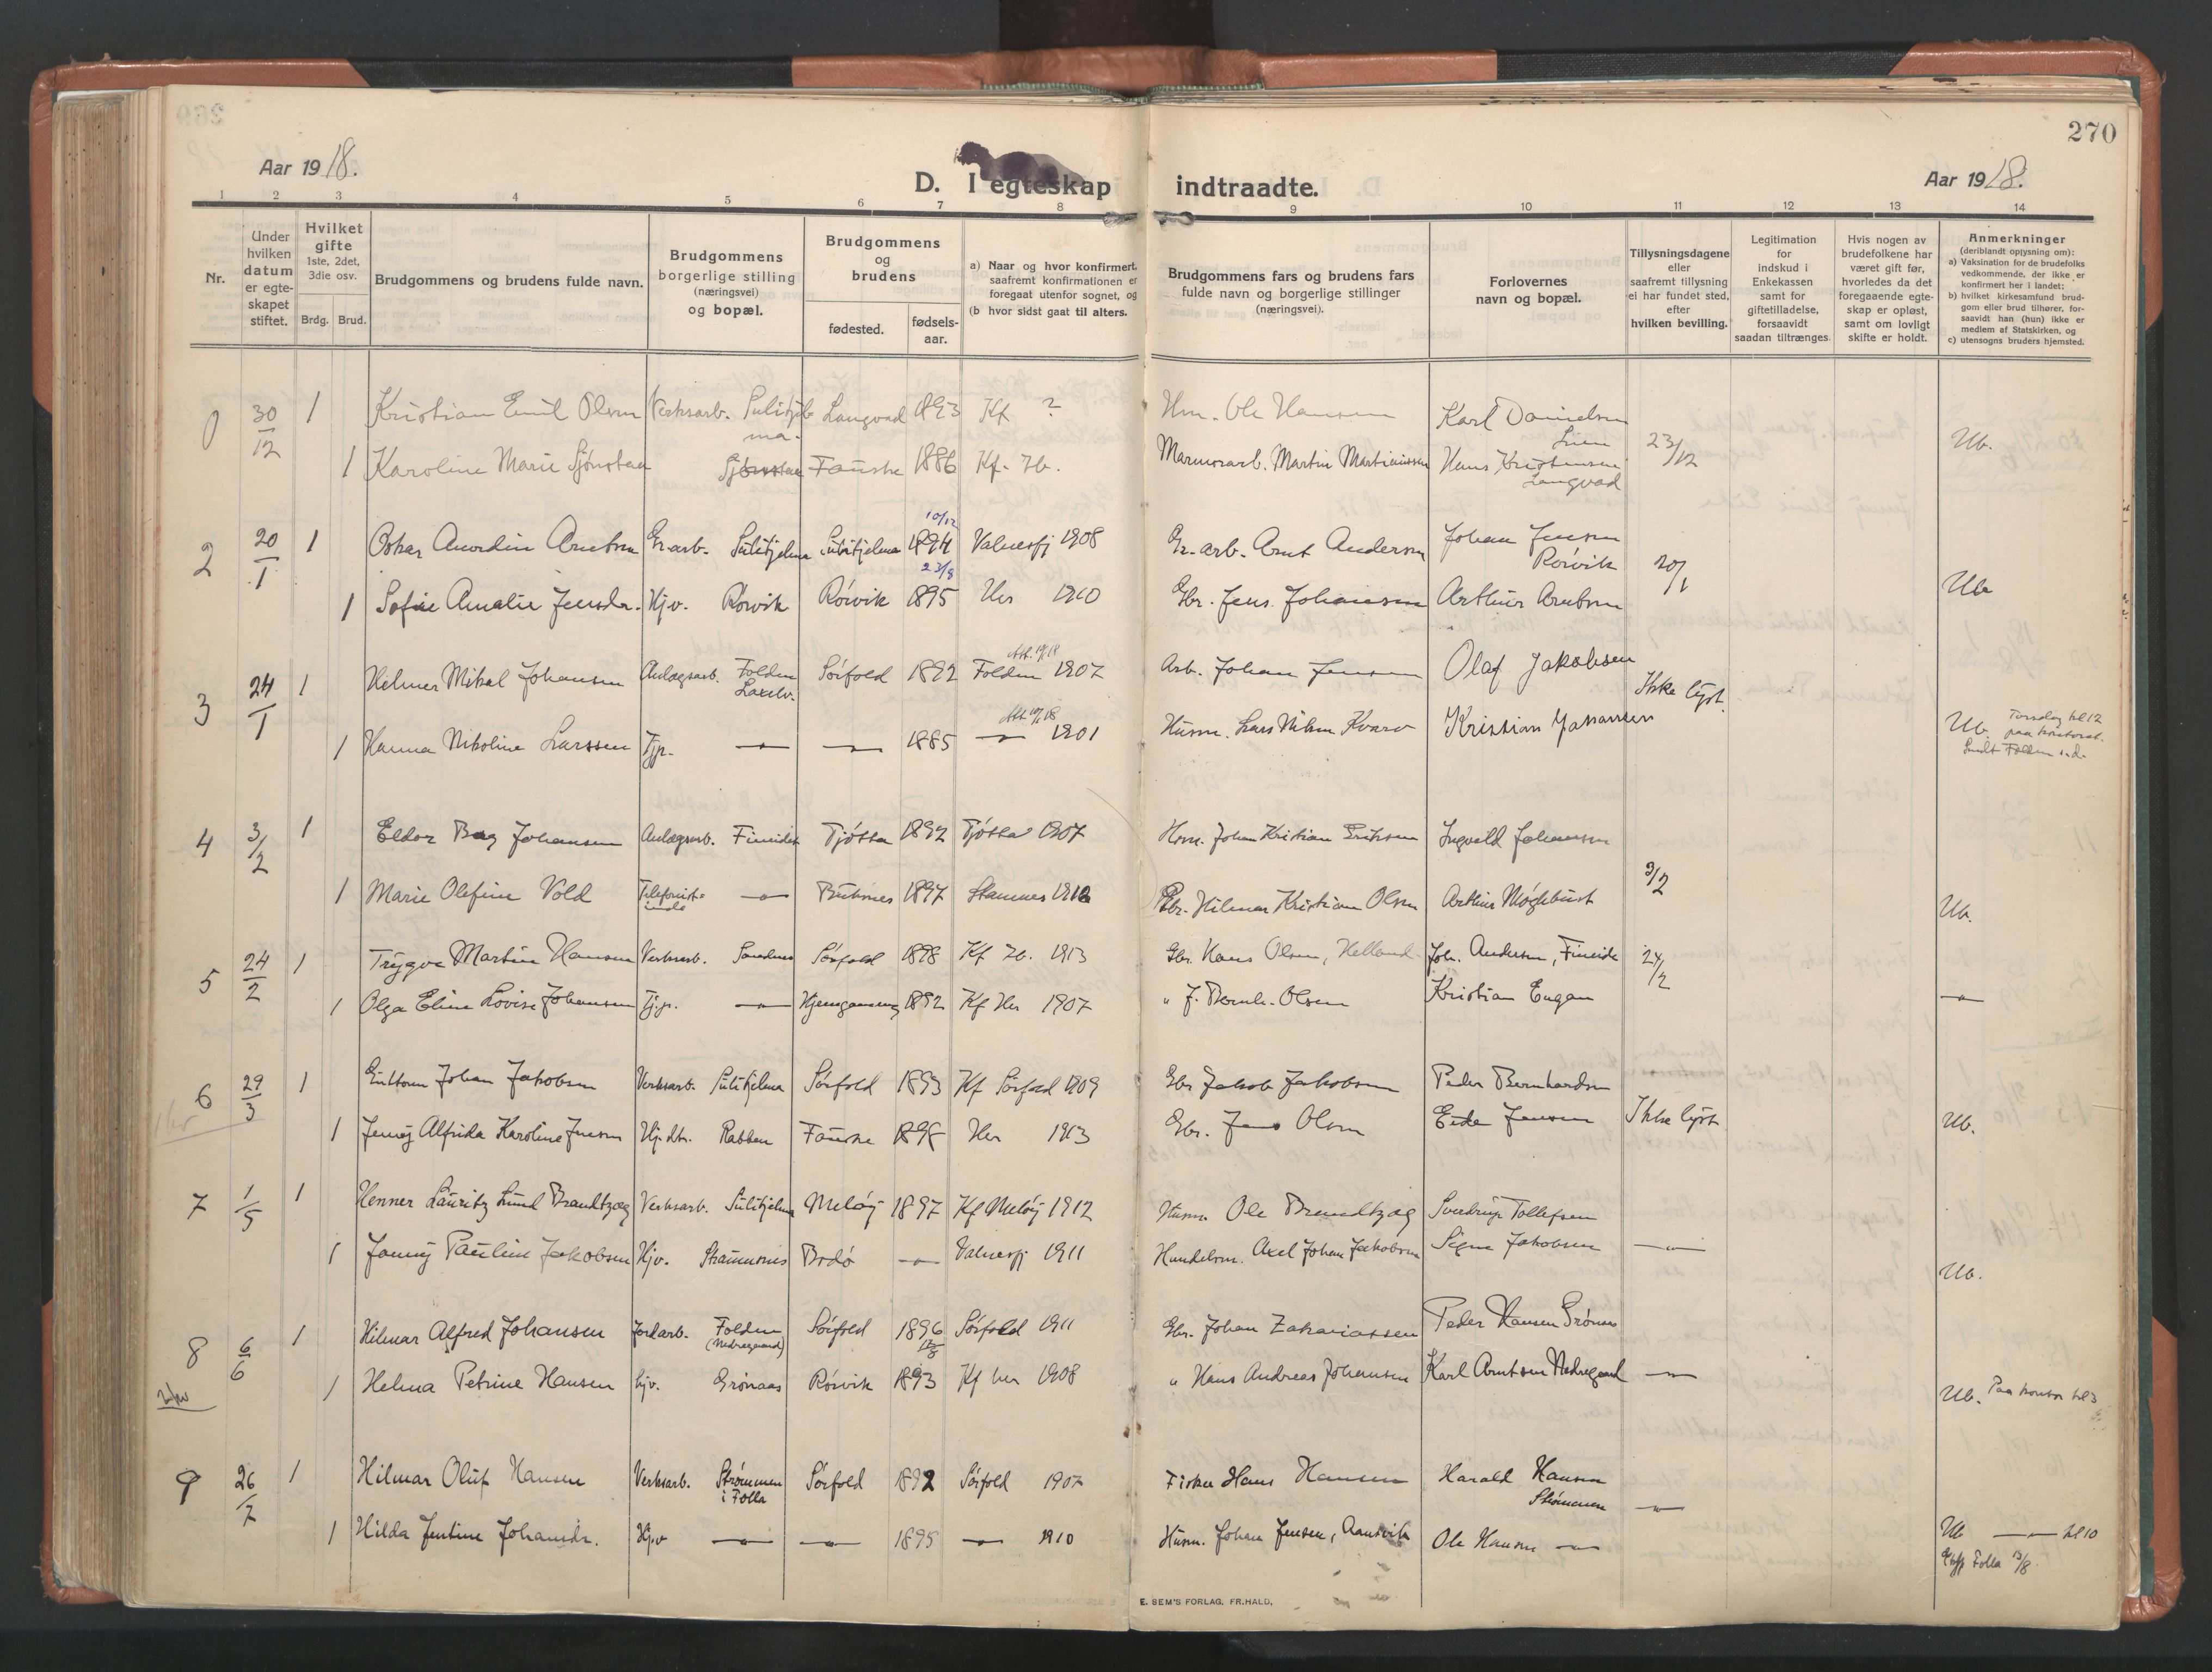 270
Aar 1918.
D. I egteskap indtraadte.
Aar 1918.
1 2 3 4 5 6 7 8 9 10 11 12 13 14
Nr.
Under hvilken datum er egte-skapet stiftet.
Hvilket gifte 1ste, 2det, 3die osv.
Brdg. Brud.
Brudgommens og brudens fulde navn.
Brudgommens borgerlige stilling (næringsvei) og bopæl.
Brudgommens og brudens
fødested. fødsels-aar.
a) Naar og hvor konfirmert, saafremt konfirmationen er foregaat utenfor sognet, og
(b hvor sidst gaat til alters.
Brudgommens fars og brudens fars fulde navn og borgerlige stillinger (næringsvei).
Forlovernes navn og bopæl.
Tillysningsdagene eller saafremt tillysning ei har fundet sted, efter hvilken bevilling.
Legitimation for indskud i Enkekassen samt for giftetilladelse, forsaavidt saadan tiltrænges.
Hvis nogen av brudefolkene har været gift før, hvorledes da det foregaaende egte-skap er opløst, samt om lovligt skifte er holdt.
Anmerkninger
(deriblandt opjysning om):
a) Vaksination for de brudefolks vedkommende, der ikke er konfirmert her i landet;
b) hvilket kirkesamfund brud-gom eller brud tilhører, for-saavidt han (hun) ikke er medlem af Statskirken, og
c) utensogns bruders hjemsted.
30/12 1 Kristian Emil Olsen Verksarb. Sulitjelma. Langvad 1893 Kf ? Hm. Ole Hansen Karl Danielsen Lien 23/12 Ub.
1 Karoline Marie Sjønstaa Sjønstaa Fauske 1886 Kf. Marmorarb. Martin Martinussen Hans Kristensen Langvad
2 20/1 1 Oskar Anordin Arntsen Gr.arb. Sulitjelma Sulitjelma 10/12 1894 Valnesfj 1908 Gr.arb. Arnt Andersen Johan Jensen Rörvik 20/1
1 Sofie Amalie Jensdr. Hjv. Rörvik Rörvik 23/8 1895 Her 1910 Gbr. Jens Johansen Arthur Arntsen Ub
3 24/1 1 Helmer Mikal Johansen Anlægsarb. Folden Sörfold 1892 Folden 1907 Arb. Johan Jensen Olaf Jakobsen Ikke lyst.
1 Hanna Nikoline Larssen Tjp. — — 1885 — 1901 Husm. Lars Kvarv Kristian Johansen Ub. Torsdag kl 12 paa kontoret.
4 3/2 1 Eldor Bay Johansen Anlægsarb. Fineidet Tjötta 1892 Tjötta 1907 Hm. Johan Kristian Eriksen Ingvald Johansen 3/2
1 Marie Olefine Vold Telefonist-inde — Buknes 1897 Stamnes 1912 Gbr. Hilmar Kristian Olsen Arthur Ub.
5 24/2 1 Trygve Martin Hansen Verksarb. Sandnes Sörfold 1898 Kf 1913 Gbr. Hans Olsen, Helland Joh. Andersen, Fineide 24/2
1 Olga Eline Lovise Johansen Tjp. — 1892 Kf Her 1907 " J. Bernh. Olsen Kristian Engan —
6 29/3 1 Johan Jakobsen Verksarb. Sulitjelma Sörfold 1893 Kf Sörfold 1909 Gbr Jakob Jakobsen Peder Bernhardsen
1 Jenny Alfrida Karoline Jensen Hj.dtr. Rabben Fauske 1898 Her 1913 Gbr. Jens Olsen Jensen Ikke lyst Ub.
7 1/5 1 Henner Lauritz Lund Brandtzæg Verksarb. Sulitjelma Melöy 1897 Kf Melöy 1912 Husm. Ole Brandtzæg Sverdrup Tollefsen
1 Jenny Pauline Jakobsen Hjv. Straumsnes Bodö — Valnesfj 1911 Handelsm. Axel Johan Jakobsen Signe Jakobsen — Ub.
8 6/6 1 Hilmar Alfred Johansen Jordarb. Folden (Nedregaard) Sörfold 1896 Sörfold 1911 Gbr. Johan Zakariassen Peder Hansen Grönaas
1 Helma Petrine Hansen hjv. Grönaas Rörvik 1893 Kf her 1908 " Hans Andreas Johansen Karl Arntsen Nedregaard — Ub. Paa kontor kl 3
9 26/7 1 Hilmar Oluf Hansen Verksarb. Strömmen i Folla Sörfold 1892 Sörfold 1907 Fisker Hans Hansen Harald Hansen Strömmen —
1 Hilda Jentine Johansdr. Hjv — — 1895 — 1910 Husm. Johan Jensen, Aansvik Ole Hansen — Ub — kl 10
Folla 13/8
E. SEM'S FORLAG, FR.HALD,